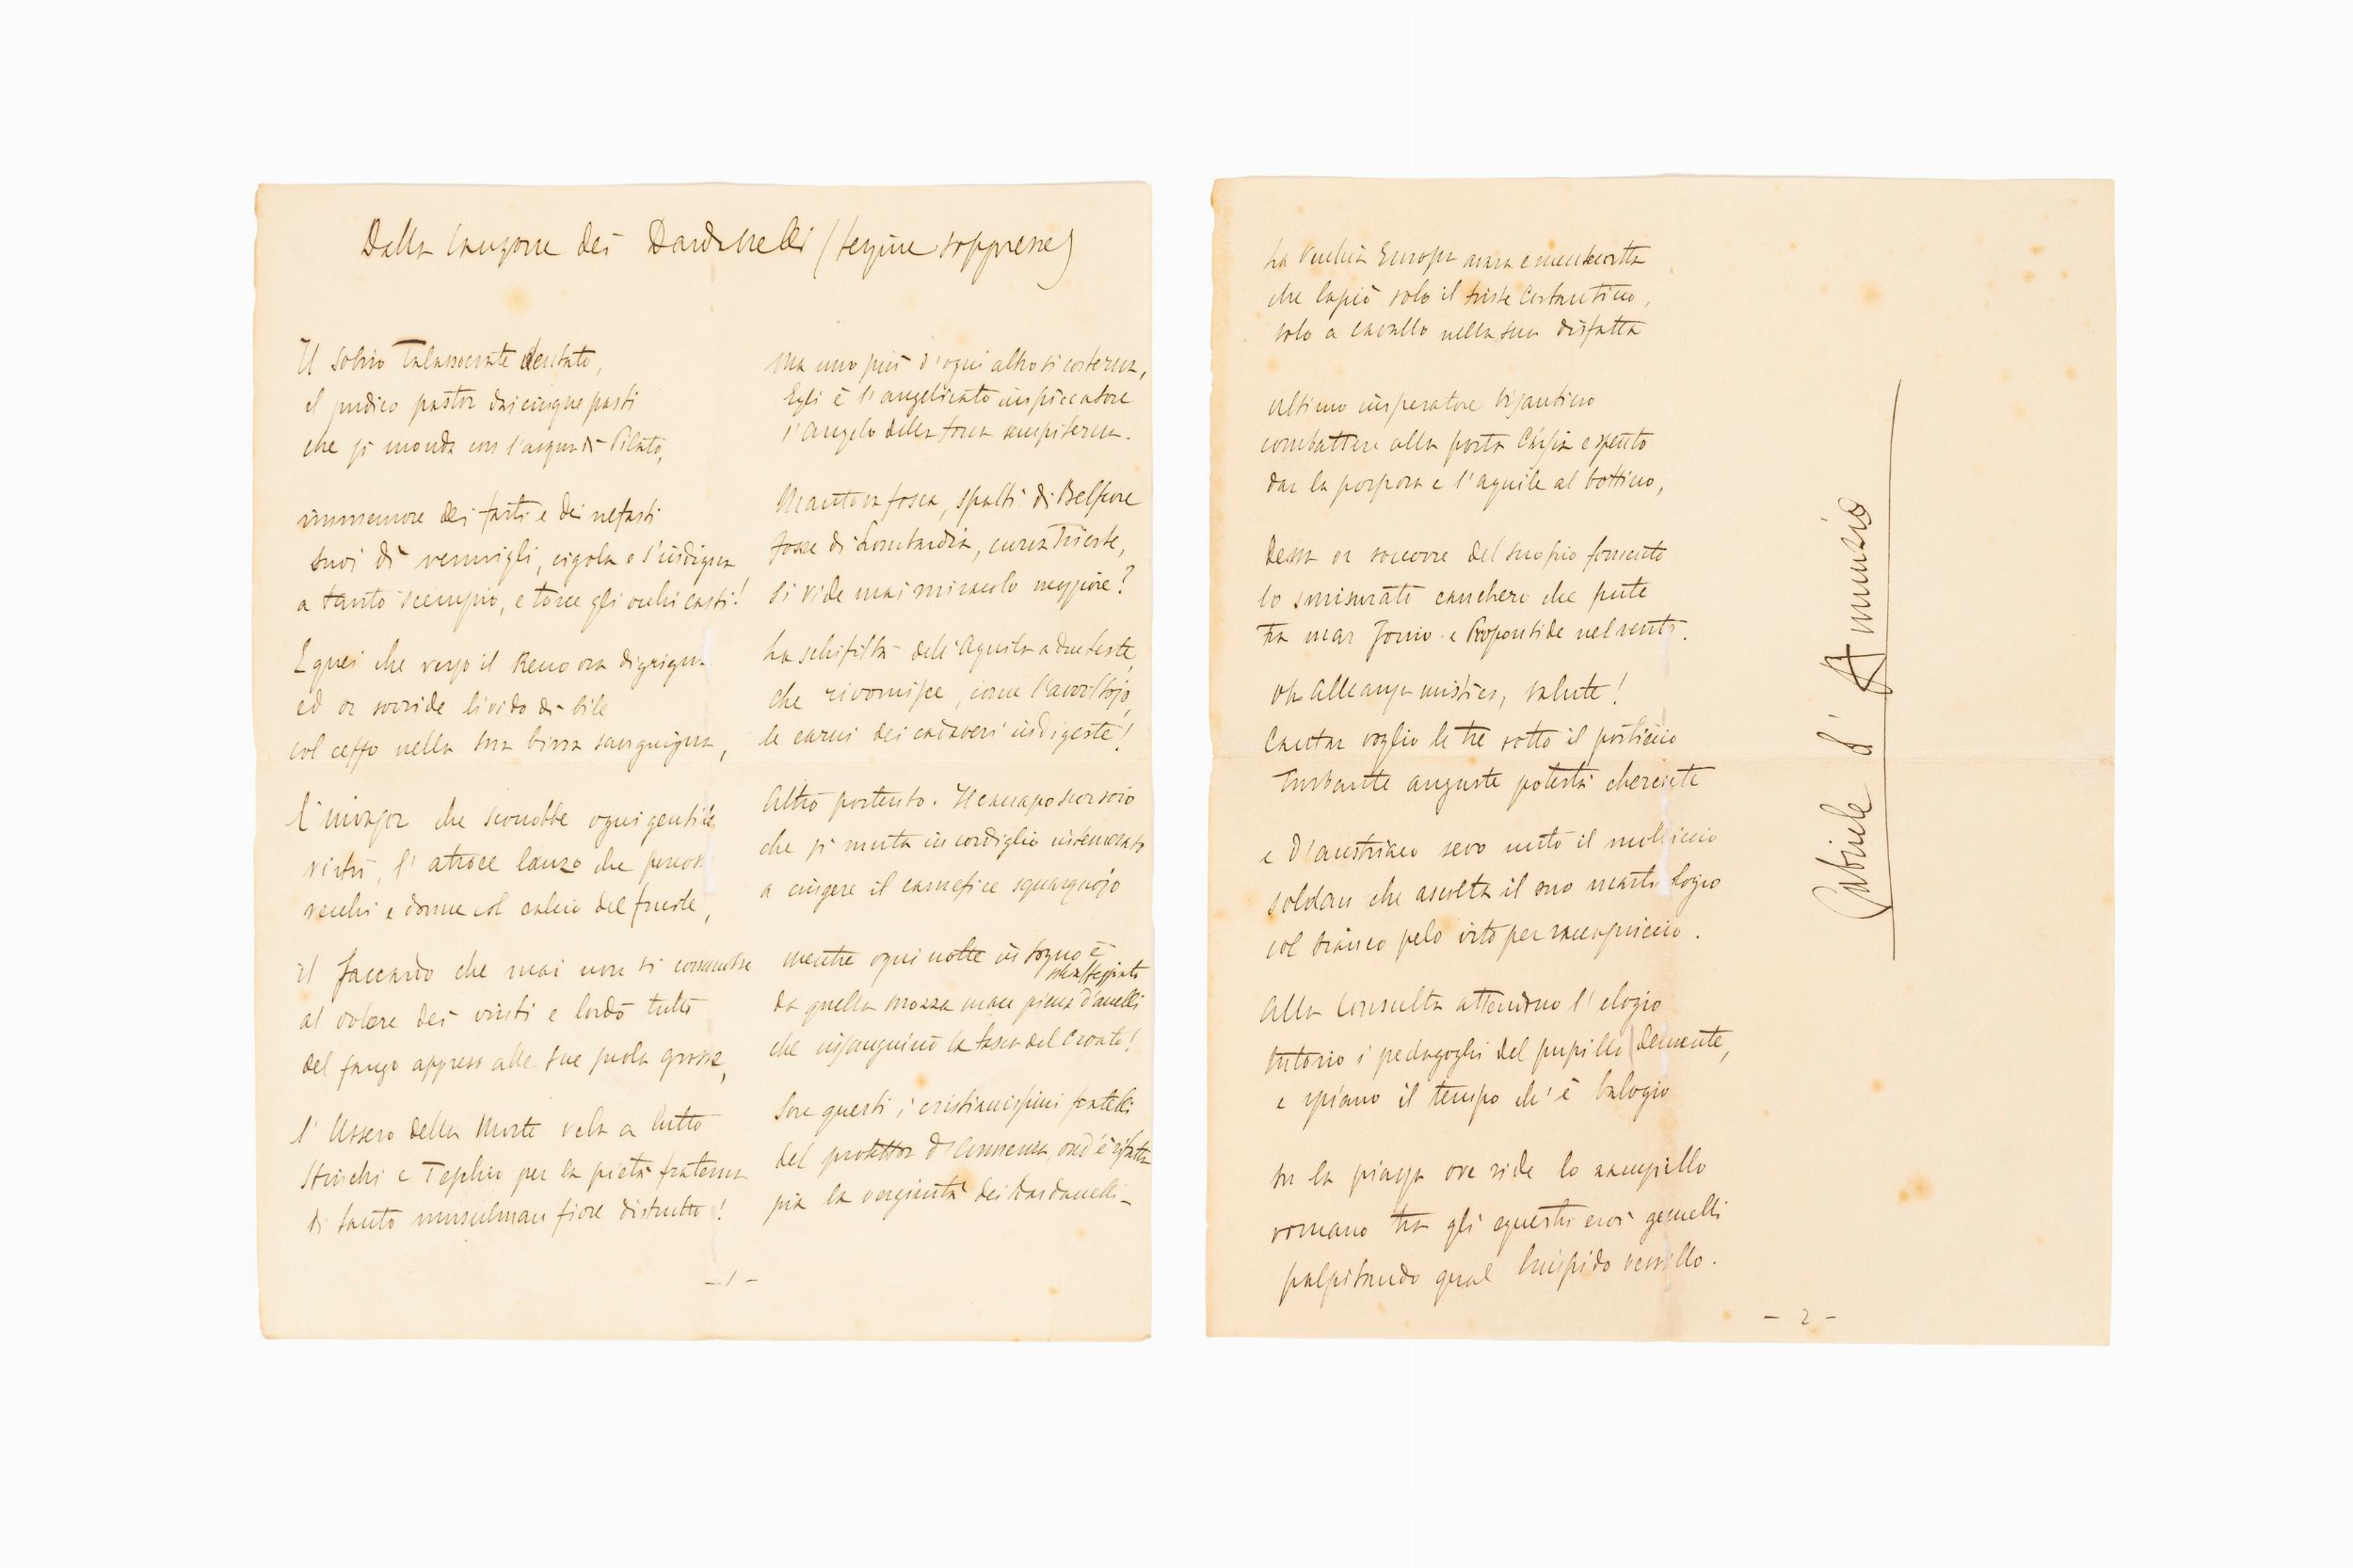 Dalla Canzone dei Dardanelli (terzine soppresse)
Il sobrio Talassocrate dentato,
il pudico pastor dai cinque pasti
che si monda con l'acqua di Pilato,
immemore dei fasti e dei nefasti
suoi dì vermigli, cigola e s'indigna
a tanto scempio, e torce gli occhi casti!
E quei che verso il Reno ora digrigna
ed or sorride livido di bile
col ceffo nella sua birra sanguigna,
l'invasor che sconobbe ogni gentile
virtù, l'atroce lanzo che percosse
vecchi e donne col calcio del fucile,
il saccardo che mai non si commosse
al dolore dei vinti e lordò tutto
del fango appreso alle sue suola grosse,
l'Ussero della Morte vela a lutto
stinchi e teschio per la pietà fraterna
di tanto musulman fiore distrutto!
Ma uno più d'ogni altro si costerna,
Egli è l'angelicato impiccatore
l'Angelo della forca sempiterna.
Mantova fosca, spalti di Belfiore
fosse di Lombardia, curva Trieste,
si vide mai miracolo maggiore?
La schifiltà dell'Aquila a due teste,
che rivomisce, come l'avvoltojo,
le carni dei cadaveri indigeste!
Altro portento. Il canapo scorsoio
che si muta in cordiglio intemerato
a cingere il carnefice squarquojo
mentre ogni notte in sogno è
schiaffeggiato
da quella mozza man piena d'anelli
che insanguinò la tasca del Croato!
Son questi i cristianissimi fratelli
del protettor d'Armenia, ond'è rifatta
pia la verginità dei Dardanelli –
– 1 –
La vecchia Europa avara e mentecatta
che lasciò solo il triste Costantino,
solo a cavallo nella sua disfatta
ultimo imperatore bizantino
combattere alla porta Càrsia e spento
dar la porpora e l'aquile al bottino,
dessa or soccorre del suo pio fomento
lo smisurato canchero che pute
tra mar Jonio e Propontide nel vento.
Oh Alleanza mistica, salute!
Cantar voglio le tre sotto il posticcio
Turbante auguste potestà chercute
e d'austriaco sevo unto il molliccio
soldan che ascolta il suo martilogio
col bianco pelo irto per raccapriccio.
Alla Consulta attendono l'elogio
tutorio i pedagoghi del pupillo demente,
e spiano il tempo ch'è balogio
su la piazza ove ride lo zampillo
romano tra gli equestri eroi gemelli
palpitando qual lùcido vessillo.
– 2 –
Gabriele d'Annunzio